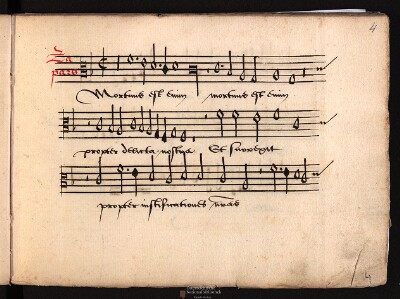 4
Mortuus est enim mortuus est enim
propter delicta nostra Et surrexit
propter iustificationes nras
4